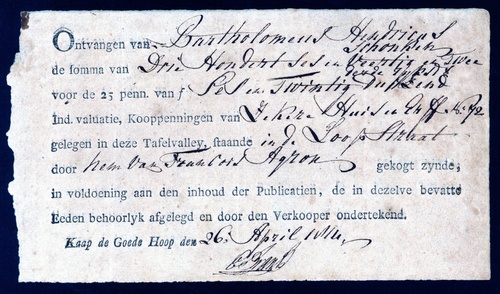 Ontvangen van Bartholomeus Hendricus
Schonken
de somma van Drie Hondert Ses en Veertig en Twee
voor de 25 penn. van f Ses en Twintig Duysend
Ind. valuatie, Kooppenningen van Zekere Huis en Erff No. 72
gelegen in deze Tafelvalley, staande in de Loop Straat
door hem van gekogt zynde,
in voldoening aan den inhoud der Publicatien, de in dezelve bevatte
Eeden behoorlyk afgelegd en door den Verkooper ondertekend.
Kaap de Goede Hoop den 26 April